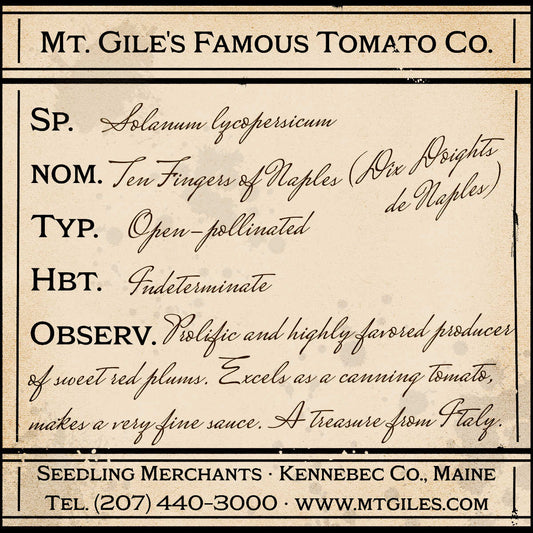 Mt. Gile's Famous Tomato Co.
Sp. Solanum lycopersicum
nom. Ten Fingers of Naples (Dix Doights
de Naples)
Typ. Open-pollinated
Hbt. Indeterminate
Observ. Prolific and highly favored producer
of sweet red plums. Excels as a canning tomato,
makes a very fine sauce. A treasure from Italy.
Seedling Merchants · Kennebec Co., Maine
Tel. (207) 440-3000 · www.mtgiles.com